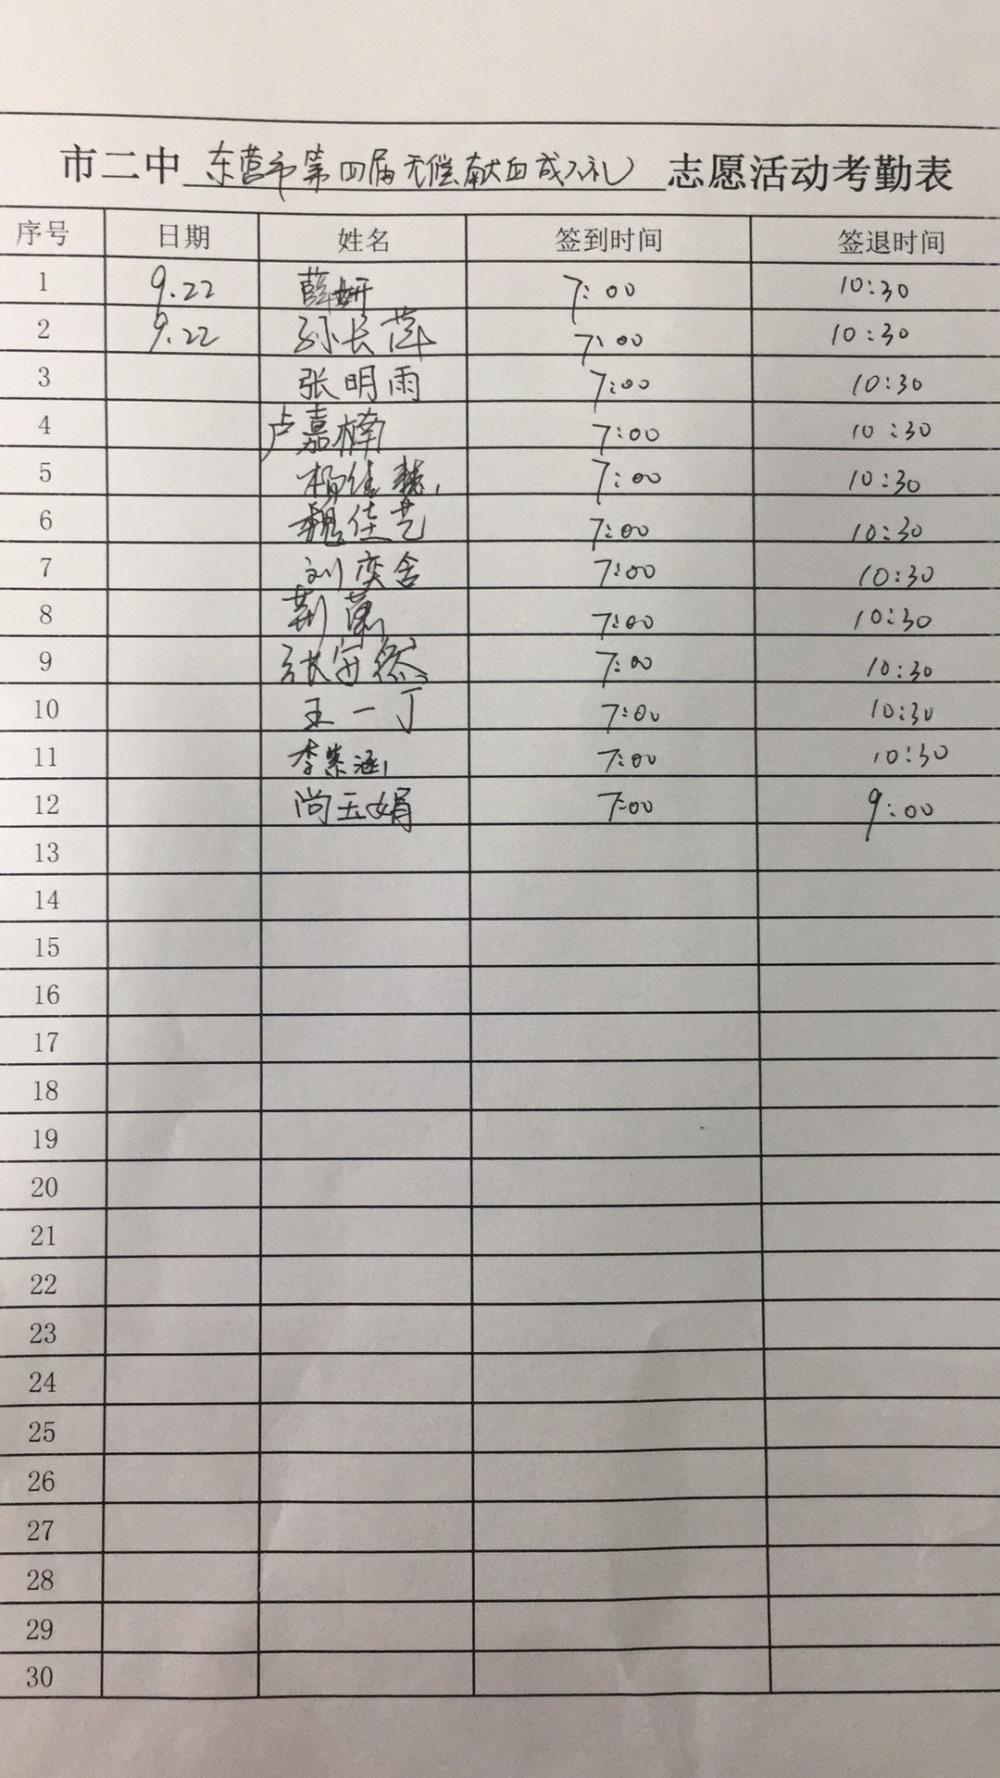 市二中 东营市第四届无偿献血成人礼 志愿活动考勤表
序号 日期 姓名 签到时间 签退时间
1 9.22 薛妍 7:00 10:30
2 9.22 孙长萍 7:00 10:30
3 张明雨 7:00 10:30
4 卢嘉楠 7:00 10:30
5 杨佳慧 7:00 10:30
6 魏佳艺 7:00 10:30
7 刘奕含 7:00 10:30
8 荆 7:00 10:30
9 张安然 7:00 10:30
10 王一丁 7:00 10:30
11 李紫涵 7:00 10:30
12 尚玉娟 7:00 9:00
13
14
15
16
17
18
19
20
21
22
23
24
25
26
27
28
29
30